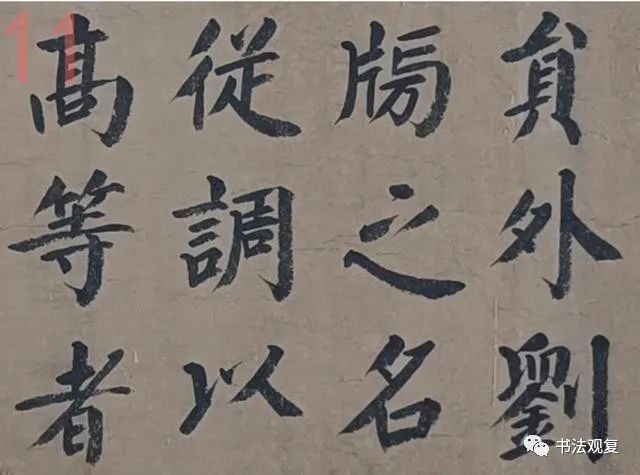 貟外劉
牓之名
從調以
髙等者
11
书法观复